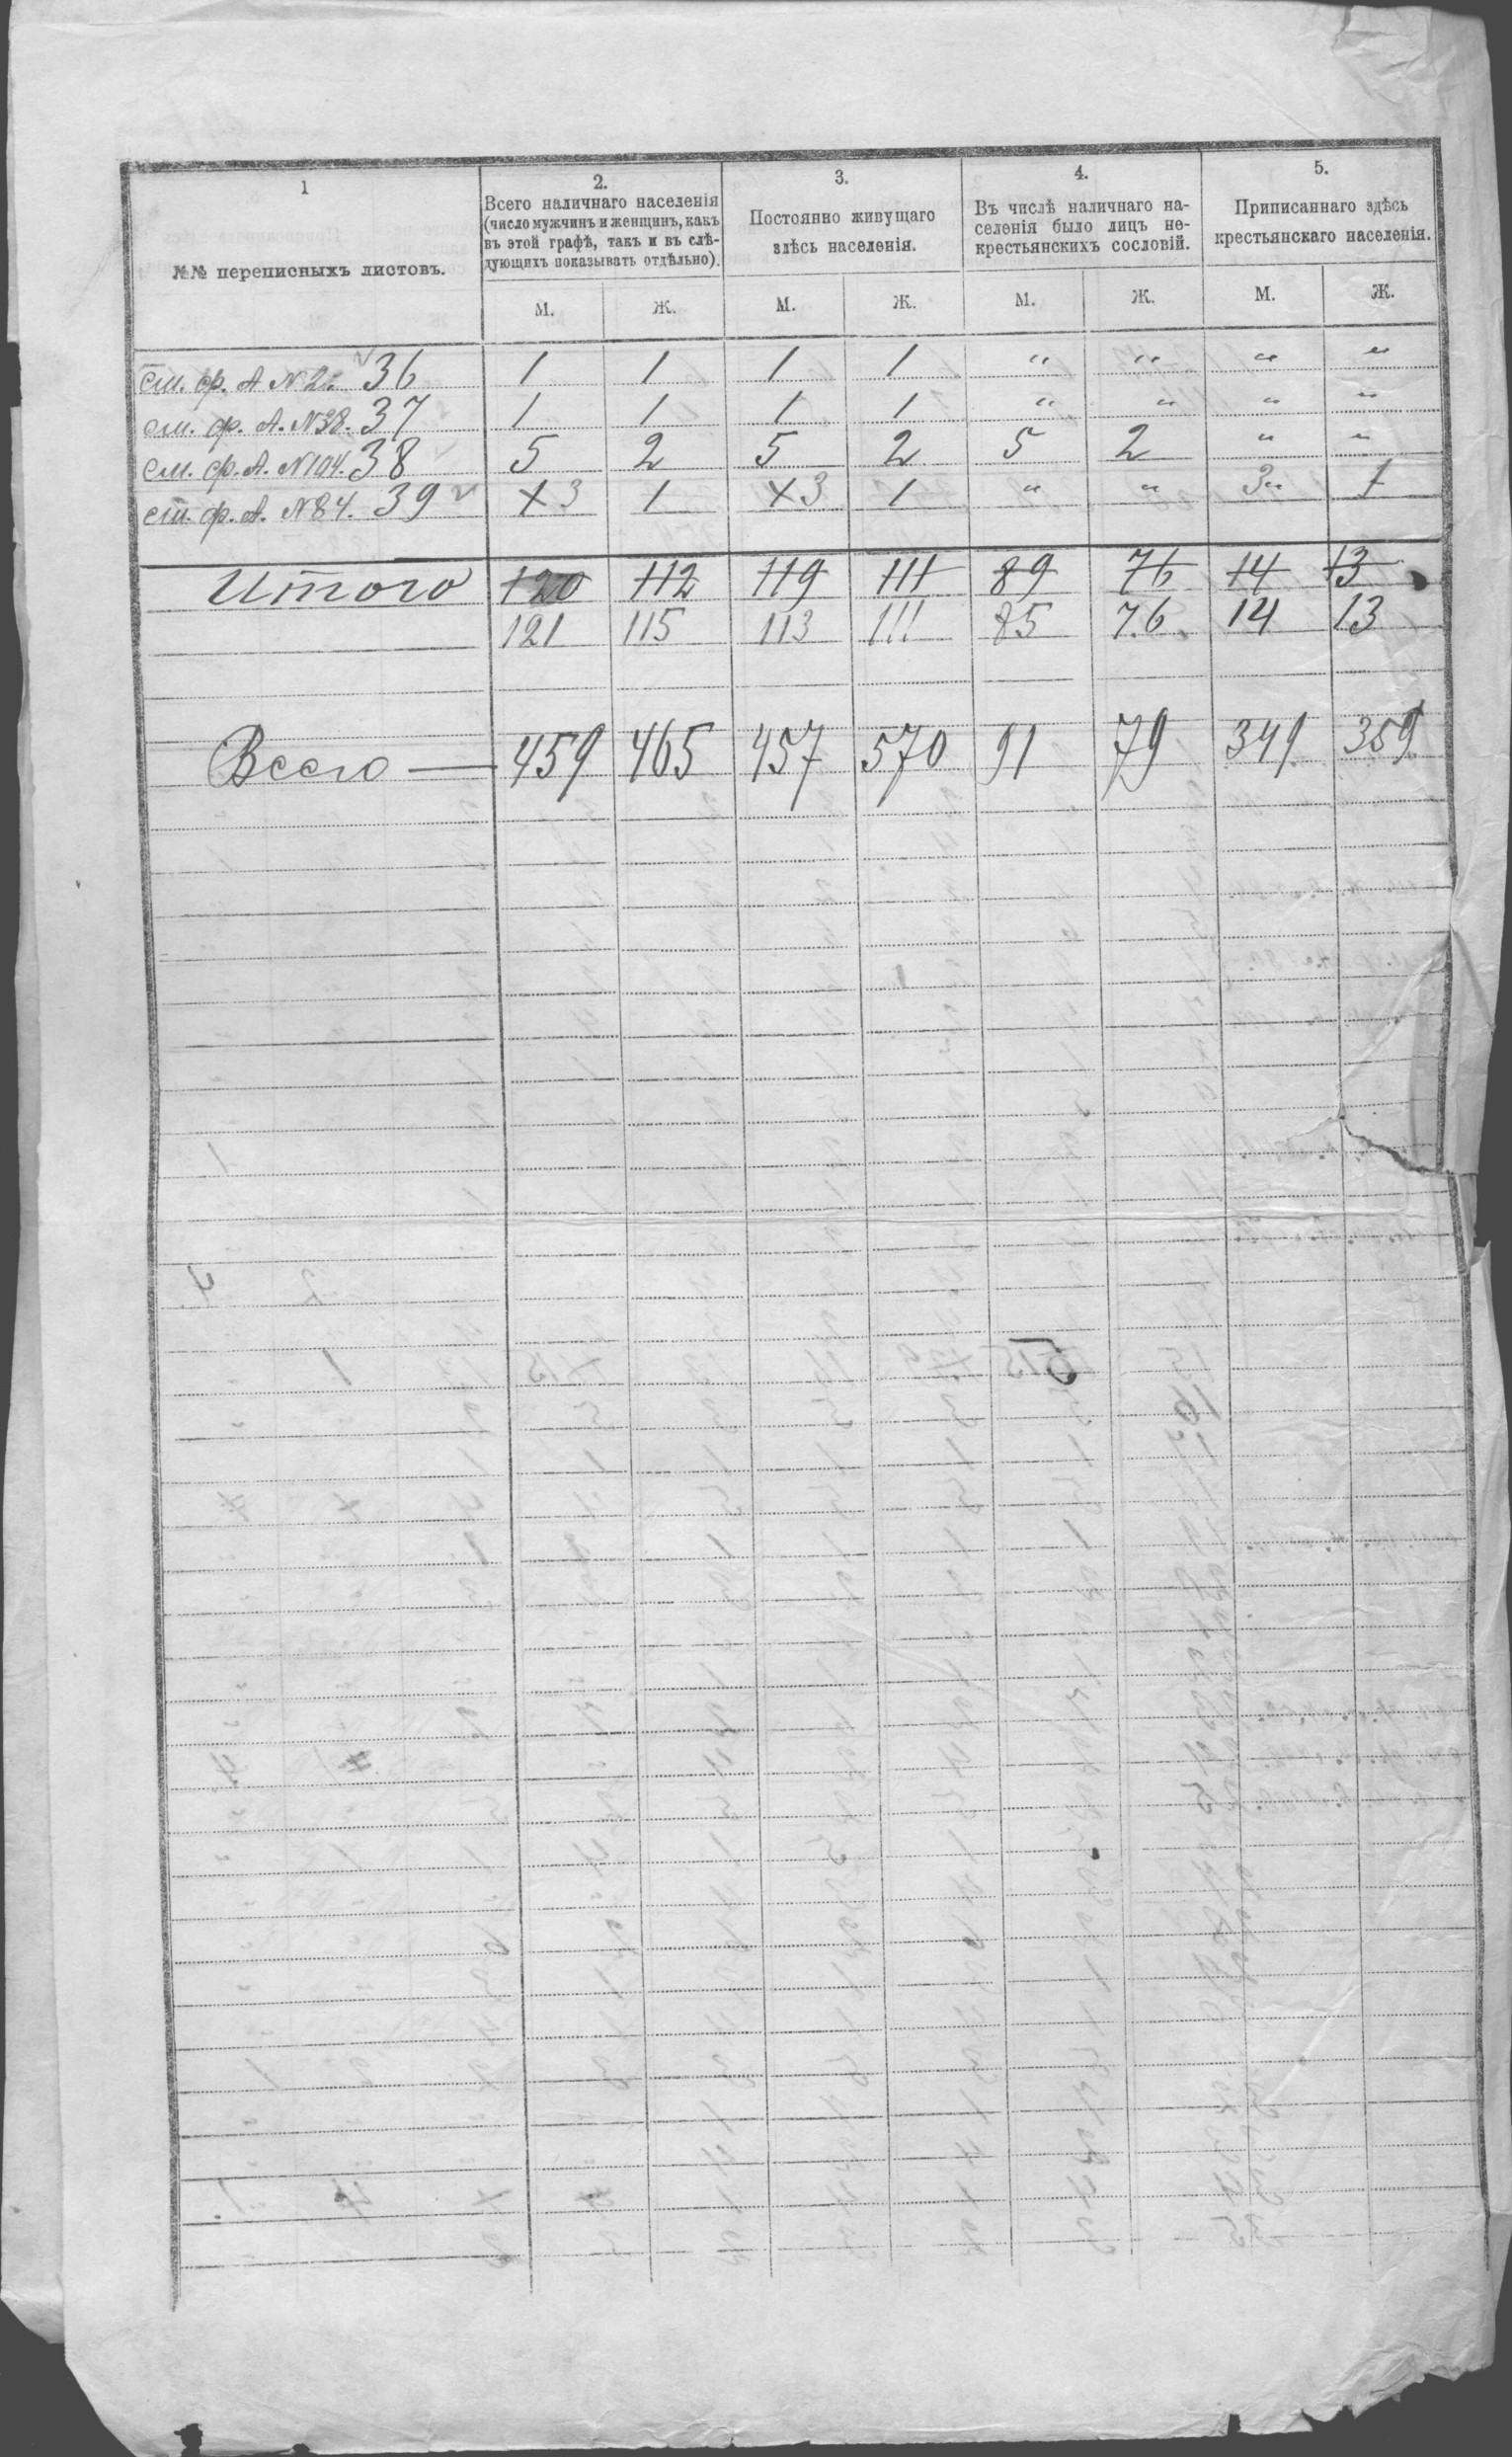 1 2. 3. 4. 5.
№№ переписныхъ листовъ.
Всего наличнаго населенія
(число мужчинъ и женщинъ, какъ
въ этой графѣ, такъ и въ слѣ-
дующихъ показывать отдѣльно).
Постоянно живущаго
здѣсь населенія.
Въ числѣ наличнаго на-
селенія было лицъ не-
крестьянскихъ сословій.
Приписаннаго здѣсь
крестьянскаго населенія.
М. Ж. М. Ж. М. Ж. М. Ж.
см. ф. А №2. 36 1 1 1 1 " " " "
см. ф. А. №38. 37 1 1 1 1 " " " "
см. ф. А. №104. 38 5 2 5 2 5 2 " "
см. ф. А. №84. 39 3 1 3 1 " " 3 " 1
Итого 120 112 119 111 89 76 14 13
121 115 113 111 85 76 14 13
Всего — 459 465 457 570 91 79 349 359